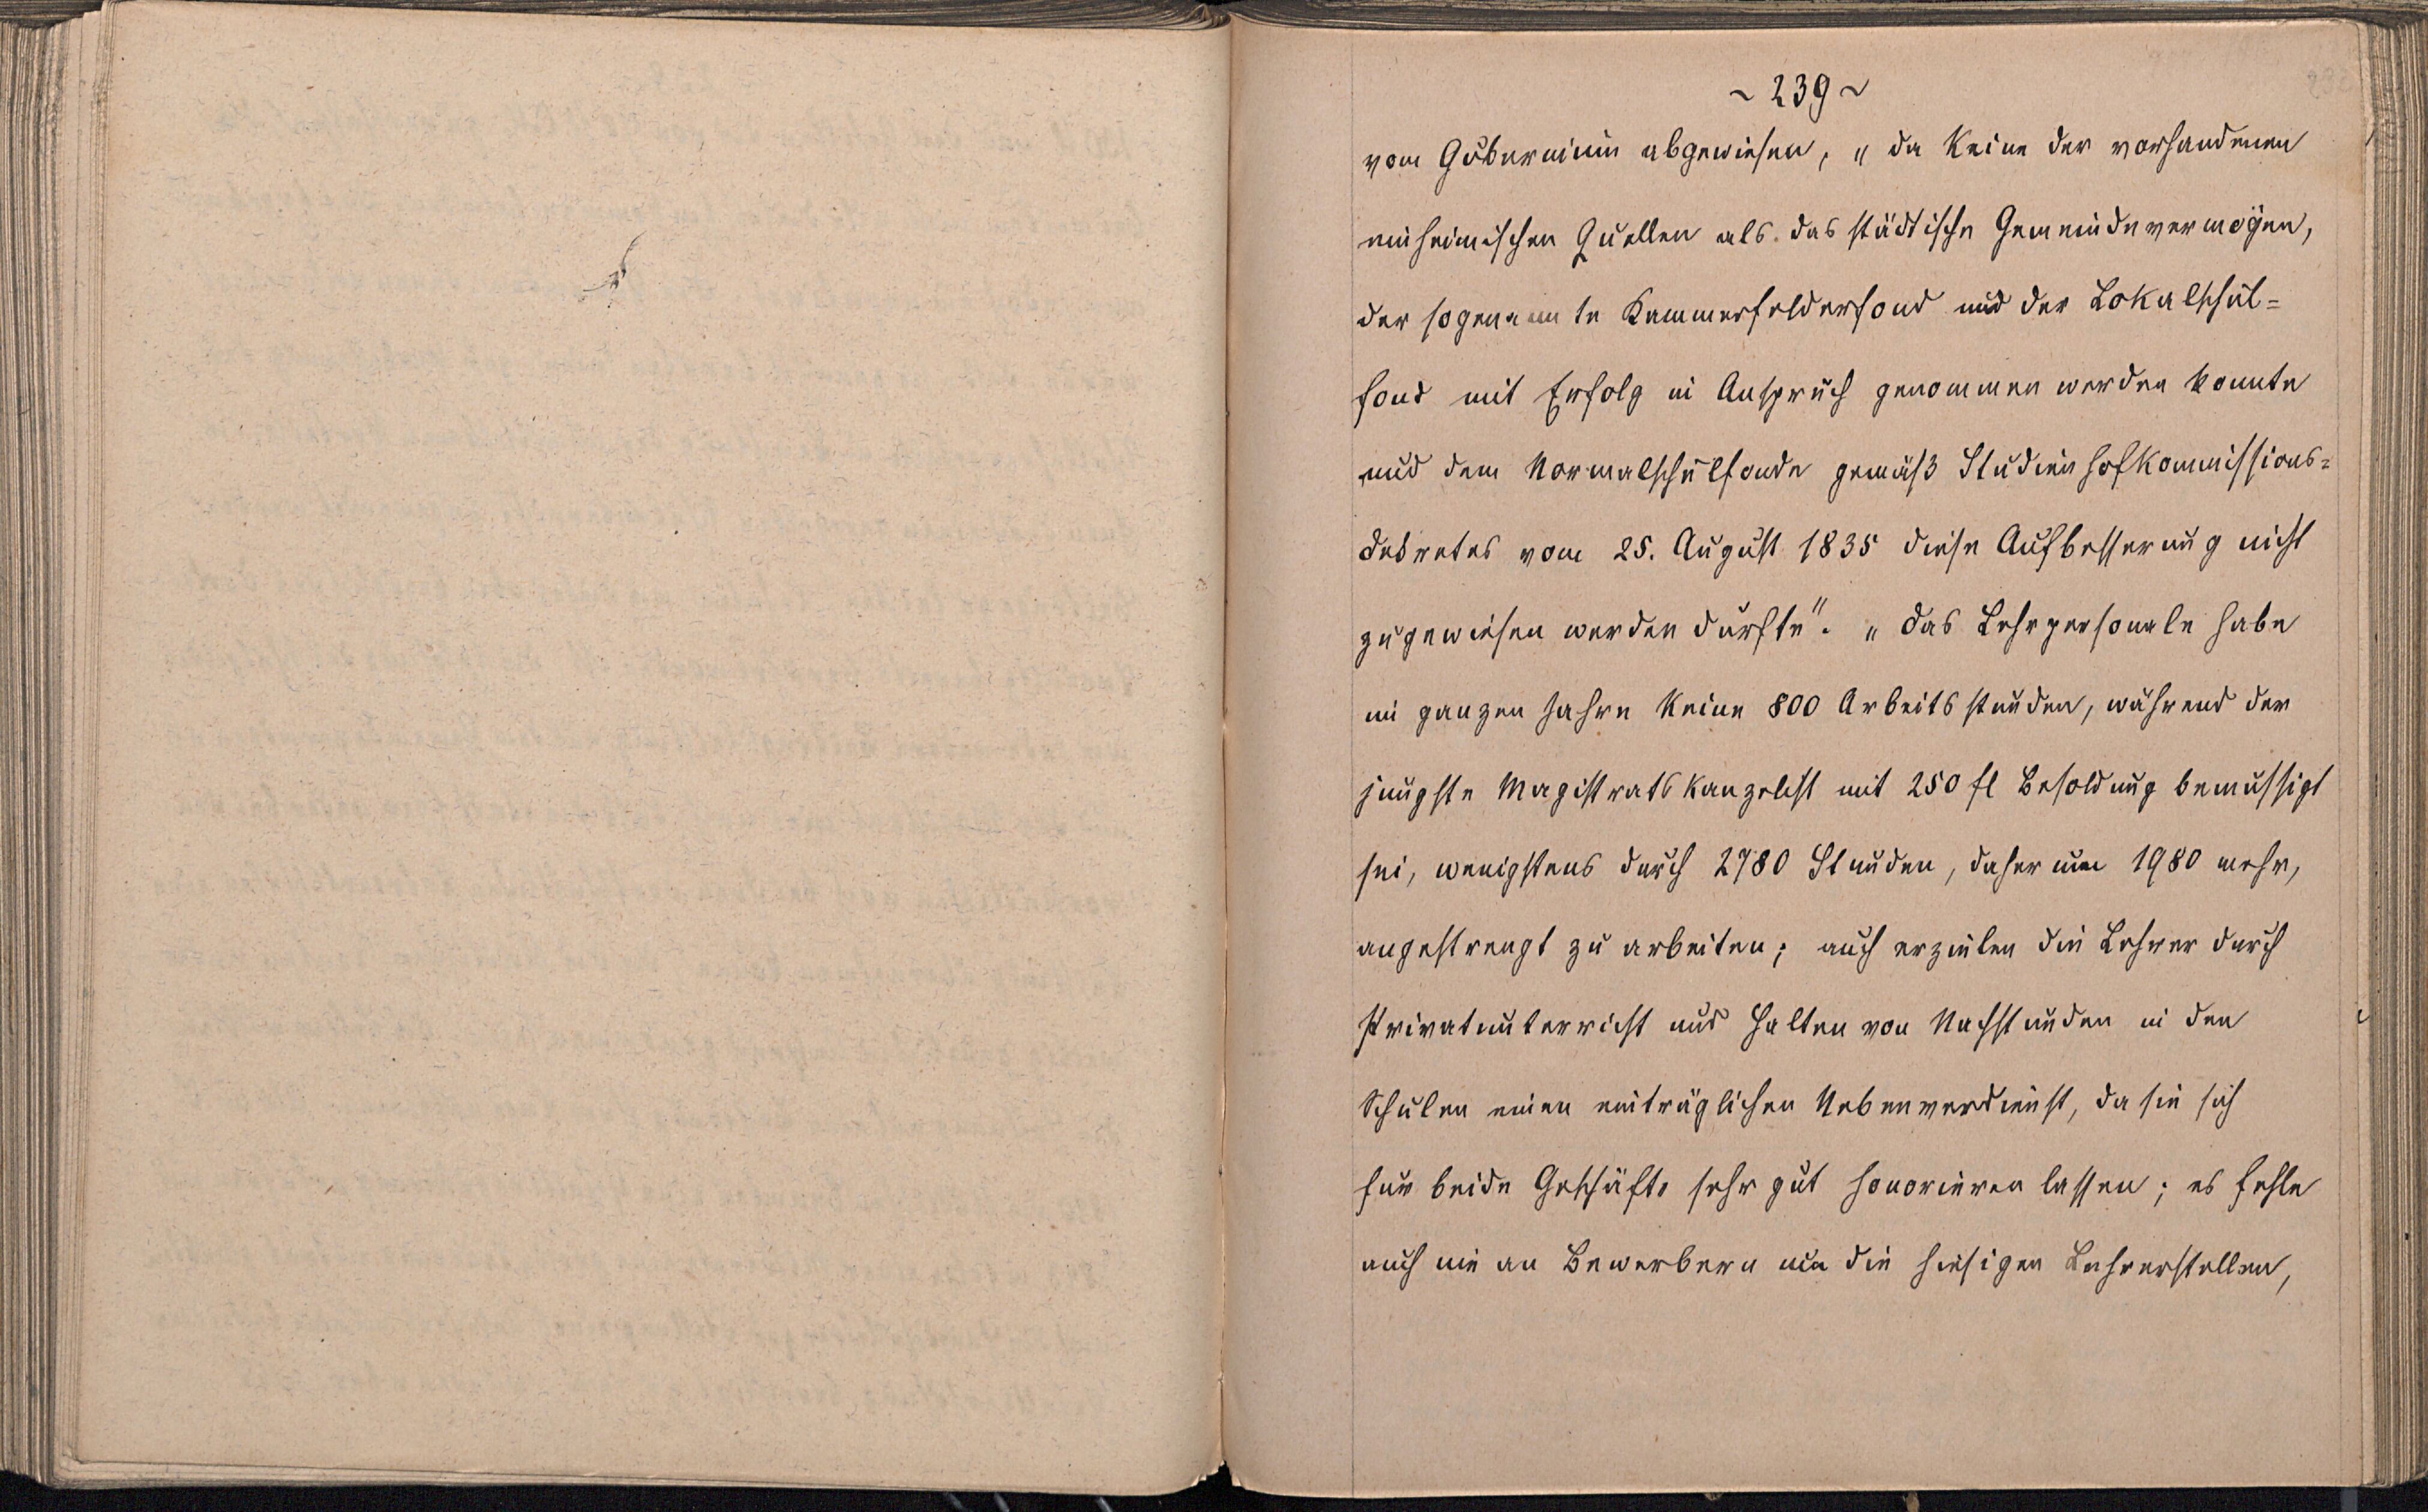 ~ 239 ~
vom Gubernium abgewiesen, „ da keine der vorhandenen
einheimischen Quellen als das städtische Gemeindevermögen,
der sogenannte Kammerfelderfond und der Lokalschul=
fond mit Erfolg in Anspruch genommen werden konnte
und dem Normalschulfonde gemäß Studienhofkommissions=
dekretes vom 25. August 1835 diese Aufbesserung nicht
zugewiesen werden dürfte“. „ das Lehrpersonale habe
im ganzen Jahre keine 800 Arbeitsstunden, während der
jüngste Magistratskanzelist mit 250 fl Besoldung bemüssigt
sei, wenigstens durch 2780 Stunden, daher um 1980 mehr,
angestrengt zu arbeiten; auch erzielen die Lehrer durch
Privatunterricht und Halten von Nachstunden in den
Schulen einen einträglichen Nebenverdienst, da sie sich
für beide Geschäfte sehr gut honorieren lassen; es fehle
auch nie an Bewerbern um die hiesigen Lehrerstellen,